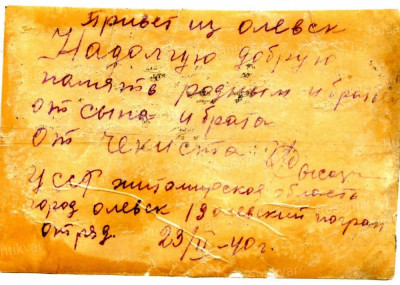 Привет из олевск
Надолгую добрую
память родным и брату
от сына и брата
от чекиста
УССР житомирская область
город олевск 19 олевский погран
отряд. 23/II-40г.